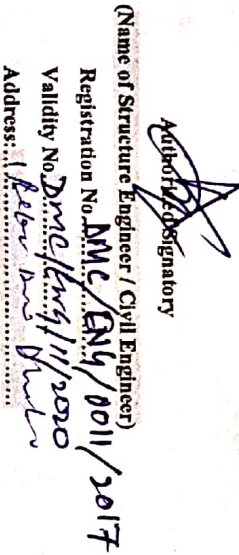 Authorized Signatory
(Name of Structure Engineer / Civil Engineer)
Registration No. DMC/ENG/0011/2017
Validity No. DMC/Eng/11/2020
Address: